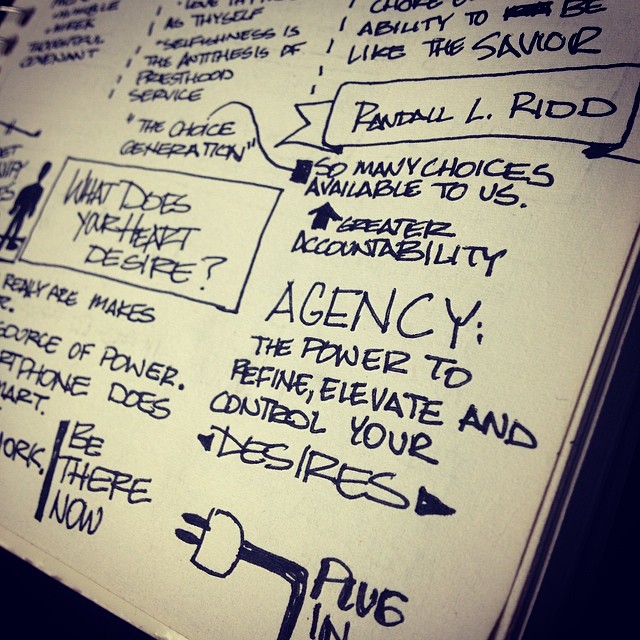 HUMBLE
THOUGHTFUL
COVENANT
AS THYSELF
"SELFISHNESS IS
THE ANTITHESIS OF
PRIESTHOOD
SERVICE
ABILITY TO BE
LIKE THE SAVIOR
RANDALL L. RIDD
"THE CHOICE
GENERATION"
SO MANY CHOICES
AVAILABLE TO US.
GREATER
ACCOUNTABILITY
WHAT DOES
YOUR HEART
DESIRE?
AGENCY:
THE POWER TO
REFINE, ELEVATE AND
CONTROL YOUR
DESIRES
REALLY ARE MAKES
SOURCE OF POWER.
RTPHONE DOES
MART.
WORK.
BE
THERE
NOW
PLUG
IN